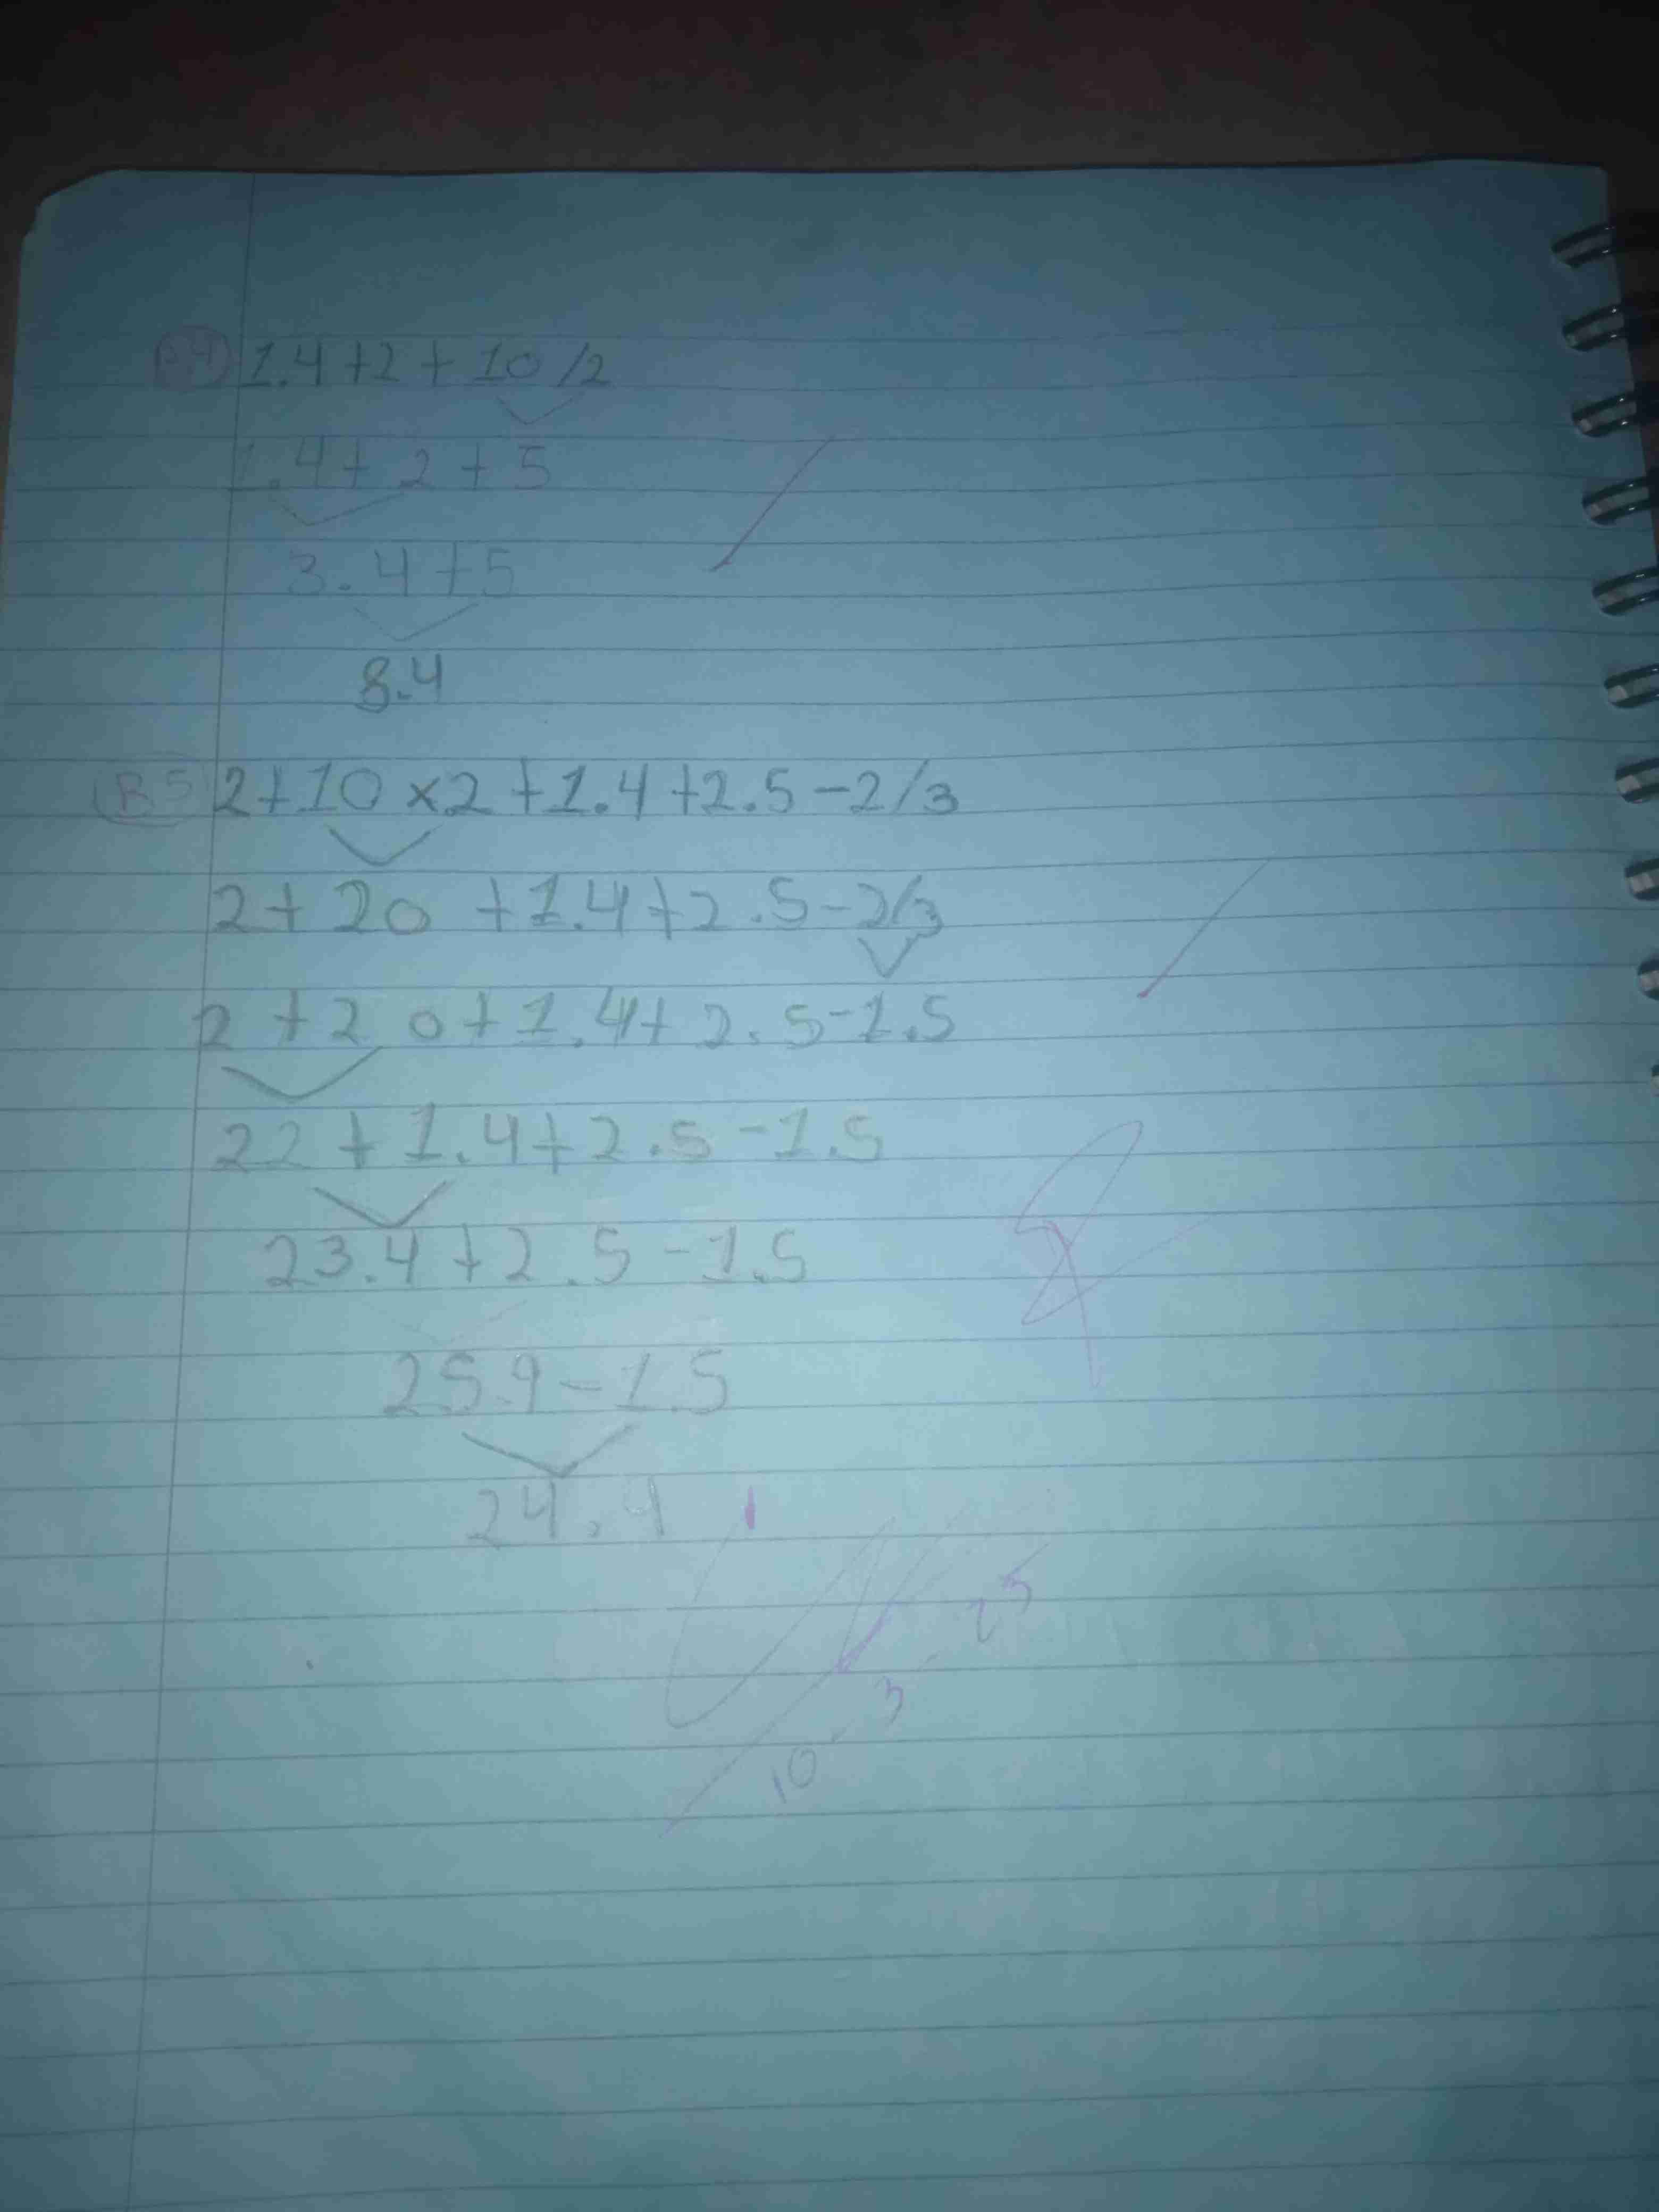 R4 1.4+2+10/2
1.4+2+5
3.4+5
8.4
R5 2+10×2+1.4+2.5-2/3
2+20+1.4+2.5-2/3
2+20+1.4+2.5-1.5
22+1.4+2.5-1.5
23.4+2.5-1.5
25.9-1.5
24.4
10.3.25